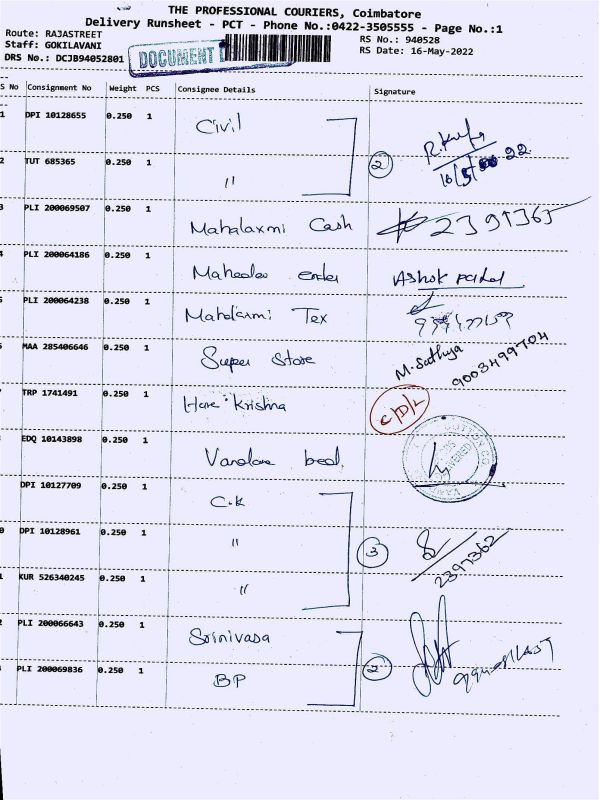 THE PROFESSIONAL COURIERS, Coimbatore
Delivery Runsheet - PCT - Phone No.:0422-3505555 - Page No.:1
Route: RAJASTREET
RS No.: 940528
Staff: GOKILAVANI
RS Date: 16-May-2022
DRS No.: DCJB94052801
DOCUMENT
S No Consignment No Weight PCS Consignee Details Signature
1 DPI 10128655 0.250 1 Civil
2 TUT 685365 0.250 1 " 2
16/5/22
3 PLI 200069507 0.250 1 Mahalaxmi Cash 2391365
4 PLI 200064186 0.250 1 Ashok patel
PLI 200064238 0.250 1 Mahalaxmi Tex
MAA 285406646 0.250 1 Super Store M. Sathya
9003499704
TRP 1741491 0.250 1 Hare Krishna
EDQ 10143898 0.250 1
DPI 10127709 0.250 1 C.K
DPI 10128961 0.250 1 " 3
2397362
KUR 526340245 0.250 1 "
PLI 200066643 0.250 1 Srinivasa
PLI 200069836 0.250 1 BP 2